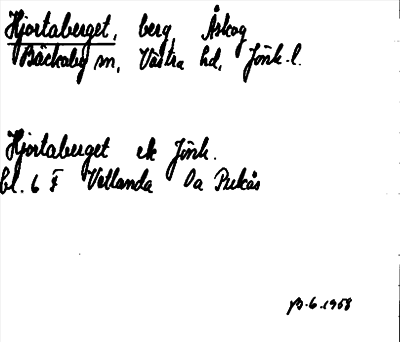 Hjortaberget, berg, Åskog
Bäckaby sn, Västra hd, Jönk. l.
Hjortaberget ek Jönk.
bl. 6 F Vetlanda Da
6.1958